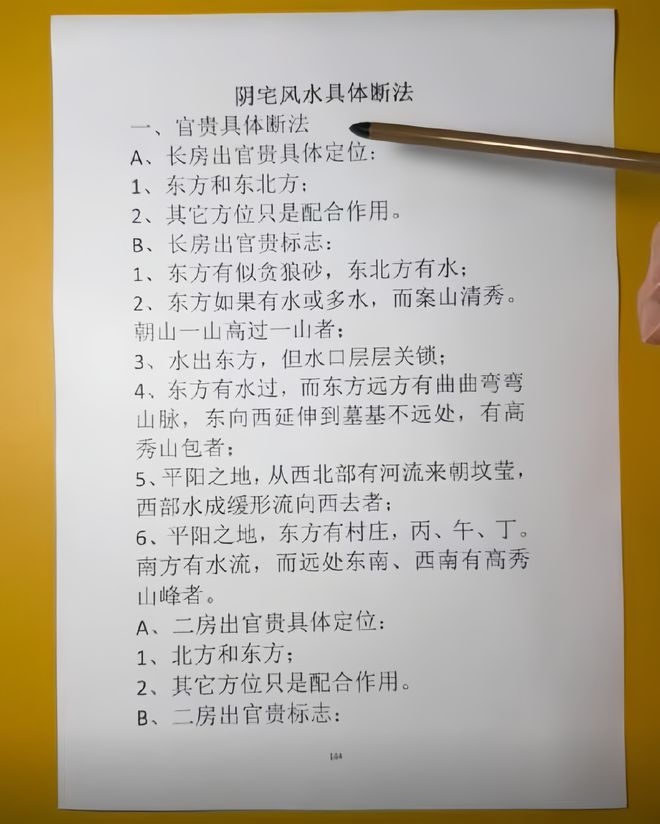 阴宅风水具体断法
一、官贵具体断法
A、长房出官贵具体定位：
1、东方和东北方；
2、其它方位只是配合作用。
B、长房出官贵标志：
1、东方有似贪狼砂，东北方有水；
2、东方如果有水或多水，而案山清秀。
朝山一山高过一山者；
3、水出东方，但水口层层关锁；
4、东方有水过，而东方远方有曲曲弯弯
山脉，东向西延伸到墓基不远处，有高
秀山包者；
5、平阳之地，从西北部有河流来朝坟莹，
西部水成缓形流向西去者；
6、平阳之地，东方有村庄，丙、午、丁。
南方有水流，而远处东南、西南有高秀
山峰者。
A、二房出官贵具体定位：
1、北方和东方；
2、其它方位只是配合作用。
B、二房出官贵标志：